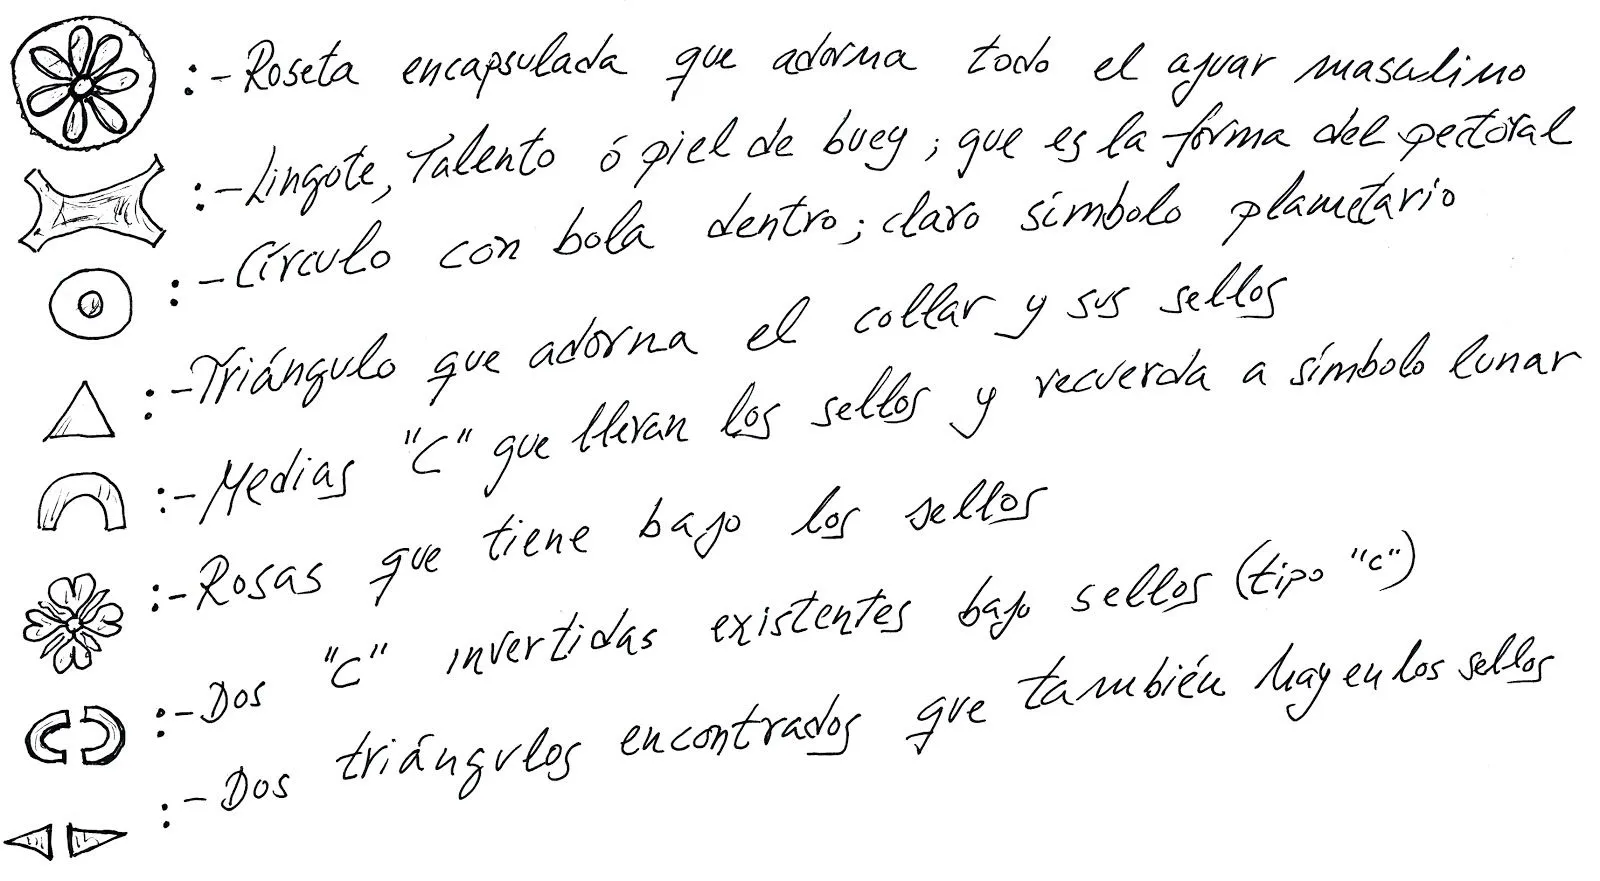 :-Roseta encapsulada que adorna todo el ajuar masculino
:-Lingote, Talento ó piel de buey; que es la forma del pectoral
:-Círculo con bola dentro; claro símbolo planetario
:-Triángulo que adorna el collar y sus sellos
:-Medias "C" que llevan los sellos y recuerda a símbolo lunar
:-Rosas que tiene bajo los sellos
:-Dos "C" invertidas existentes bajo sellos (tipo "c")
:-Dos triángulos encontrados que también hay en los sellos